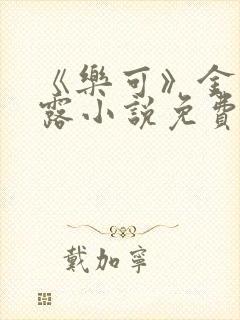 《樂可》金
露小說免費
戴加寧